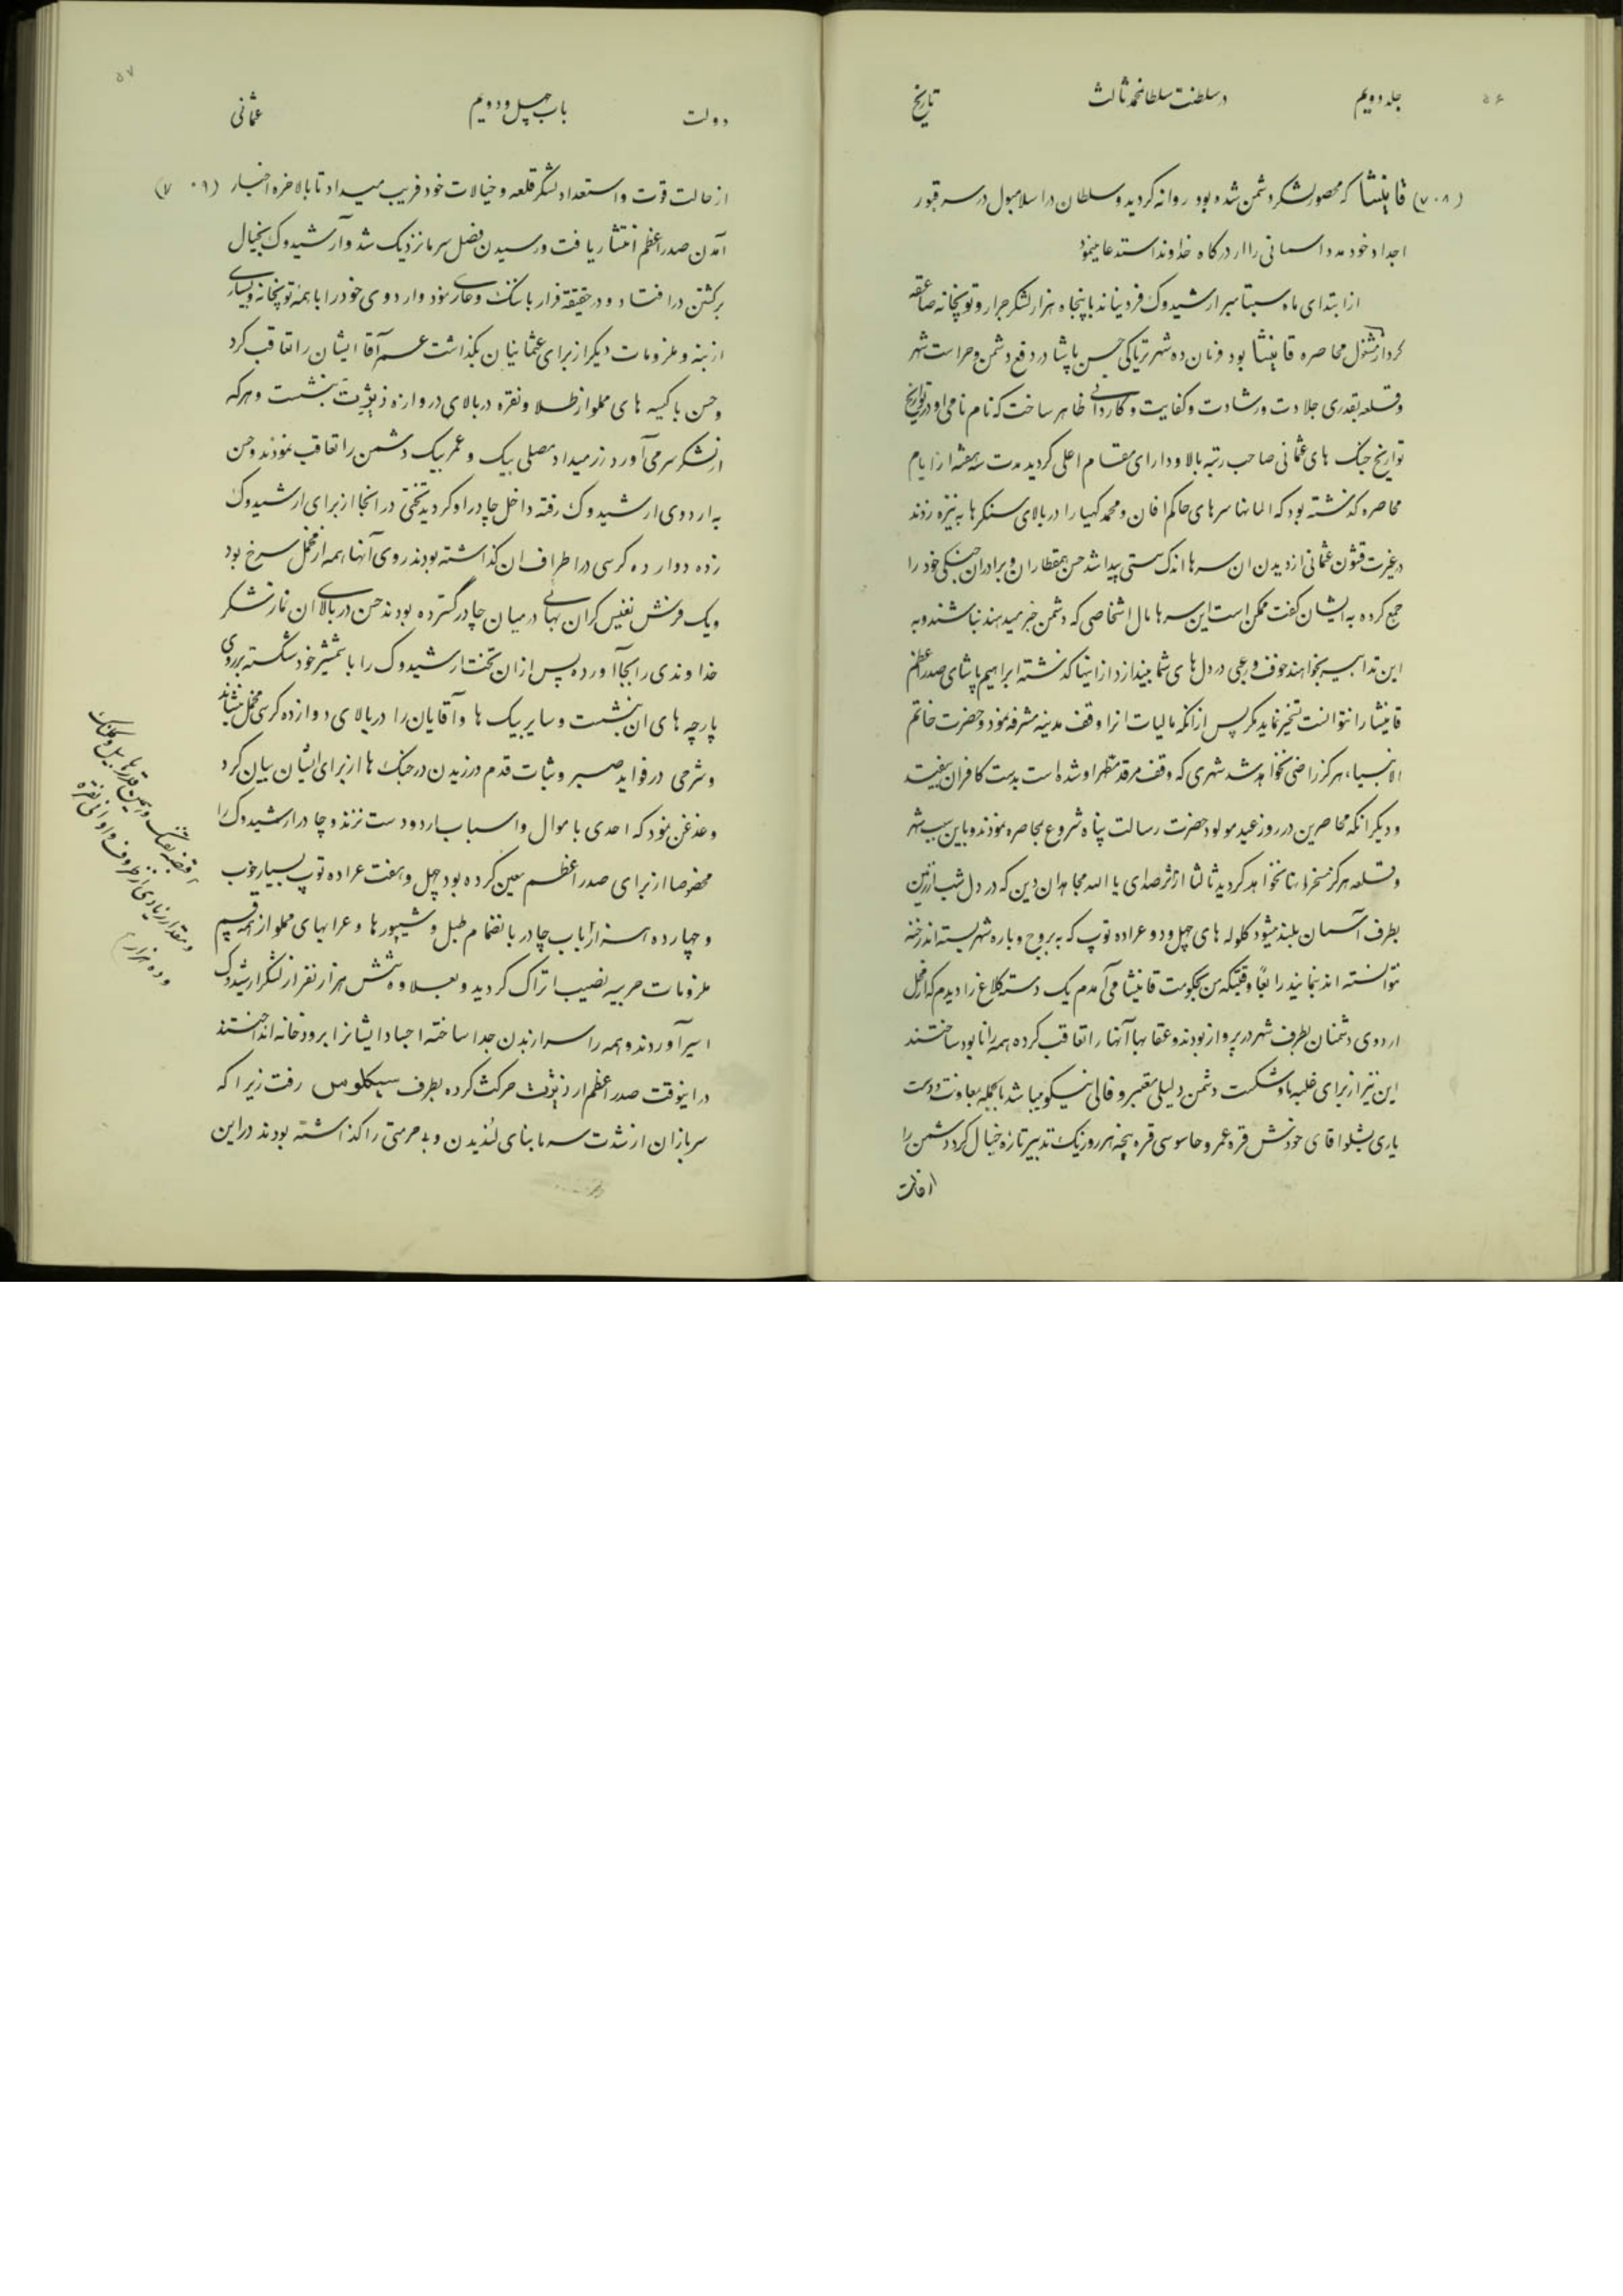 ۵۶
جلد دویم در سلطنت سلطان محمد ثالث تاریخ
(۷۰۸) قانیشا که محصور لشکر دشمن شده بود روانه کردید و سلطان در اسلامبول در سر قبور
اجداد خود مدد اسمانی را از درکاه خداوند استدعا مینمود
از ابتدای ماه سبتامبر ارشیدوک فردیناند با پنجاه هزار لشکر جرار و توپخانه صاعقه
کردار مشغول محاصره قانیشا بود و نان ده شهر تریاکی حسن پاشا در دفع دشمن و حراست شهر
و قلعه بقدری جلادت و رشادت و کفایت و کاردانی ظاهر ساخت که نام نامی او در تواریخ
تواریخ جنک های عثمانی صاحب رتبه بالا و دارای مقام اعلی کردید مدت سه هفته از ایام
محاصره کذشته بود که المانها سرهای حاکم افان و محمد کهیا را در بالای سنکرها به نیزه زدند
در غیرت قشون عثمانی از دیدن ان سرها اندک سستی پیدا شد حسن همقطاران و برادران جنکی خود را
جمع کرده به ایشان کفت ممکن است این سرها مال اشخاصی که دشمن خبر میدهند نباشند و به
این تدابیر بخواهند خوف و رعبی در دل های شما بیندازد از اینها کذشته ابراهیم پاشای صدر اعظم
قانیشا را نتوانست تسخیر نماید مکر پس از انکه مالیات انرا وقف مدینه مشرفه نمود و حضرت خاتم
الانبیاء هرکز راضی نخواهد شد شهری که وقف مرقد مطهر او شده است بدست کافران بیفتد
و دیکر انکه محاصرین در روز عید مولود حضرت رسالت پناه شروع بمحاصره نمودند و باین سبب شهر
و قلعه هرکز مسخر انها نخواهد کردید ثالثا از اثر صدای یا الله مجاهدان دین که در دل شب از زمین
بطرف آسمان بلند میشود کلوله های چهل و دو عراده توپ که به بروج و باره شهر بسته اند رخنه
نتوانسته اند بنمایند رابعاً وقتیکه من بحکومت قانیشا می آمدم یک دسته کلاغ را دیدم که از محل
اردوی دشمنان بطرف شهر در پرواز بودند و عقابها آنها را تعاقب کرده همه را نابود ساختند
این نیز از برای غلبه ما و شکست دشمن دلیلی معتبر و فالی نیکو میباشد بالجمله بمعاونت و دست
یاری بشلو اقای خودش قره عمر و جاسوسی قره پنچه هر روز یک تدبیر تازه خیال کرد دشمن را
از حالت
۵۷
دولت باب چهل و دویم عثمانی
از حالت قوت و استعداد لشکر قلعه و خیالات خود فریب میداد تا بالاخره اخبار (۷۰۹)
آمدن صدر اعظم انتشار یافت و رسیدن فصل سرما نزدیک شد و آرشیدوک بخیال
برکشتن در افتاد و در حقیقة فرار با ننک و عاری نمود و اردوی خود را با همه توپخانه و بسیاری
از بنه و ملزومات دیکر از برای عثمانیان بکذاشت عمر آقا ایشان را تعاقب کرد
و حسن با کیسه های مملو از طلا و نقره در بالای دروازه زیژیت بنشست و هرکه
از لشکر سر می آورد زر میداد مصلی بیک و عمر بیک دشمن را تعاقب نمودند و حسن
به اردوی ارشیدوک رفته داخل چادر او کردید تختی در انجا از برای ارشیدوک
زده دوازده کرسی در اطراف ان کذاشته بودند روی آنها همه از مخمل سرخ بود
و یک فرش نفیس کران بهائی در میان چادر گسترده بودند حسن در بالای ان نماز شکر
خداوندی را بجا آورده پس از ان تخت ارشیدوک را با شمشیر خود شکسته بر روی
پارچه های ان بنشست و سایر بیک ها و آقایان را در بالای دوازده کرسی مخمل بنشاند
و شرحی در فواید صبر و ثبات قدم ورزیدن در جنک ها از برای ایشان بیان کرد
و غدغن نمود که احدی با موال و اسباب اردو دست نزند و چادر ارشیدوک را
مخصوصا از برای صدر اعظم معین کرده بود چهل و هفت عراده توپ بسیار خوب
و چهارده هزار باب چادر بانضمام طبل و شیپورها و عرابهای مملو از همه قسم
ملزومات حربیه نصیب اتراک کردید و بعلاوه شش هزار نفر از لشکر ارشیدوک
اسیر آوردند و همه را سر از بدن جدا ساخته اجساد ایشانرا برودخانه انداختند
در اینوقت صدر اعظم از زیژیت حرکت کرده بطرف سیکلوس رفت زیرا که
سربازان از شدت سرما بنای لندیدن و بی حرمتی را کذاشته بودند در این
قبضه تفنک و همین قدرها بیل و کلنک
و مقدار زیادی از ظروف و اوانی نقره
و ده هزار